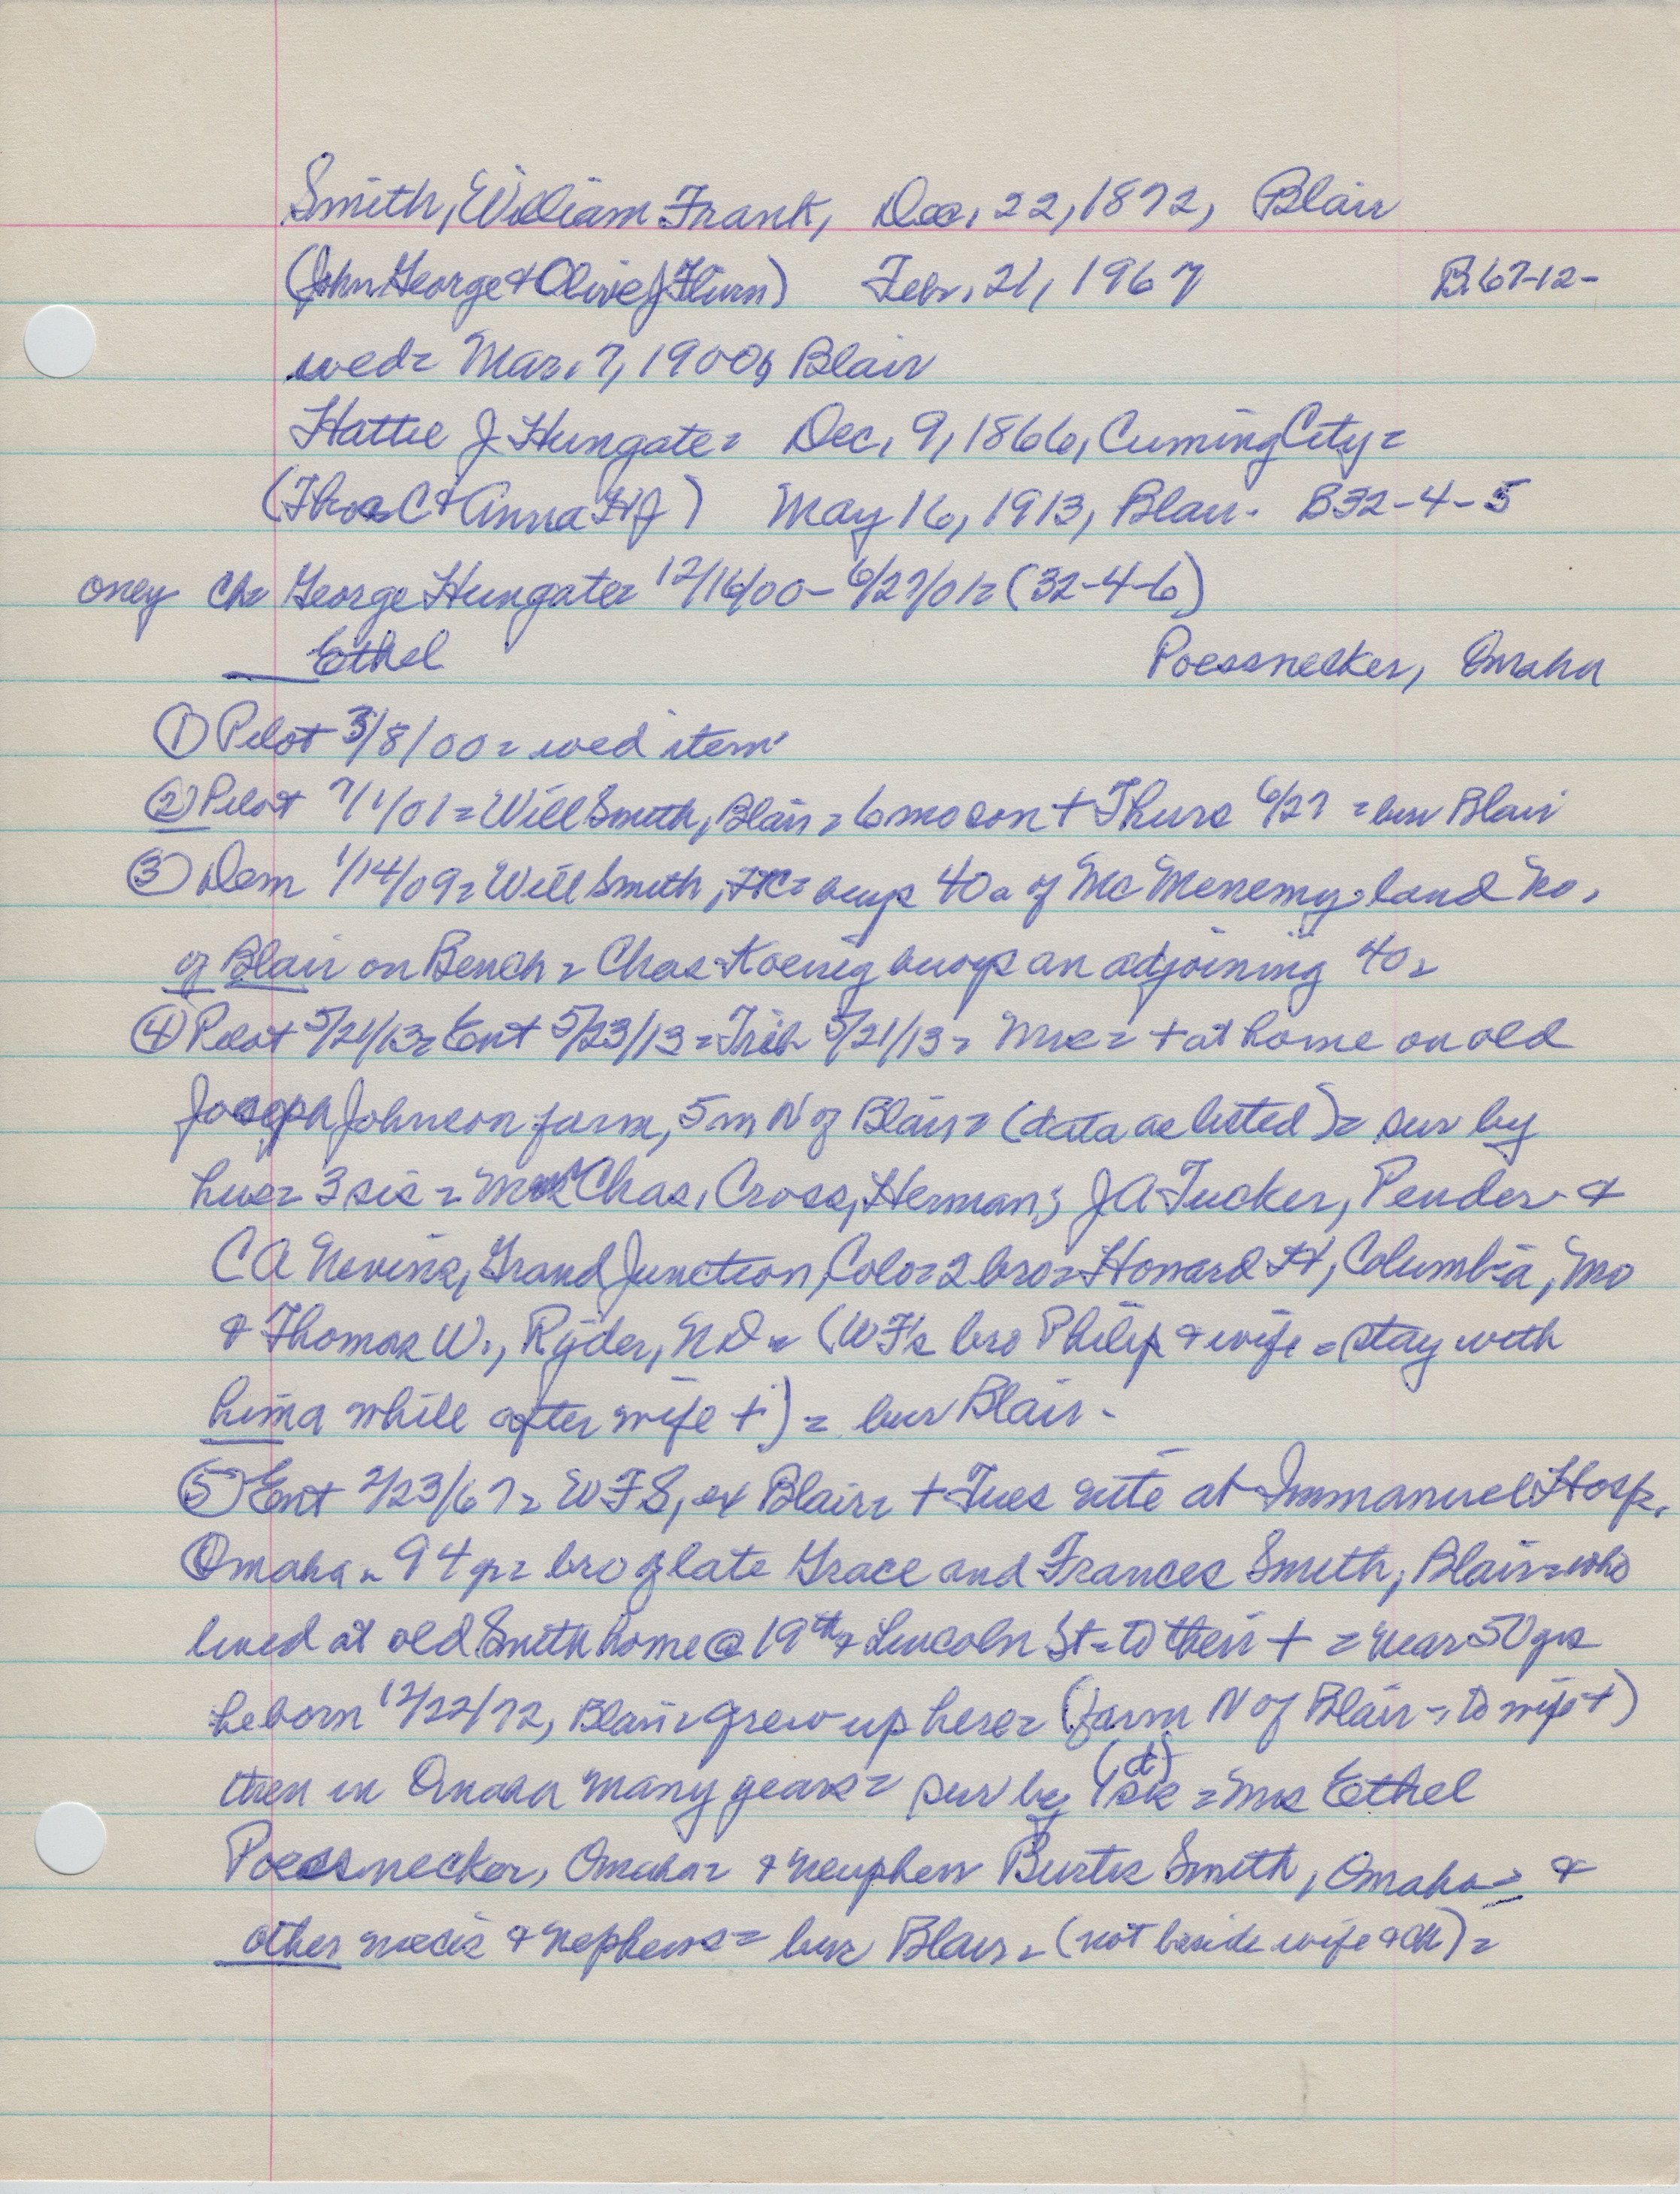 Smith, William Frank, Dec. 22, 1872, Blair
(John George & Olive J Flinn) Febr. 21, 1967 B.67-12-
wed= Mar. 7, 1900, Blair
Hattie J Hungate= Dec. 9, 1866, Cuming City=
(Thos C & Anna HJ) May 16, 1913, Blair. B32-4-5
oney ch= George Hungate= 12/16/00-6/27/01= (32-4-6)
Ethel Poessnecker, Omaha
① Pilot 3/8/00= wed item
② Pilot 7/1/01= Will Smith, Blair= 6 mo son + Thurs 6/27 = bur Blair
③ Dem 1/14/09= Will Smith, buys 40a of McMenemy land No.
of Blair on Bench= Chas Koenig buys an adjoining 40=
④ Pilot 5/21/13= Ent 5/23/13= Trib 5/21/13= Mrs= + at home on old
Joseph Johnson farm, 5m N of Blair= (data as listed)= sur by
hus= 3 sis= Mrs Chas. Cross, Herman; J A Tucker, Pender &
C A Nevins, Grand Junction, Colo= 2 bro= Howard H, Columbia, Mo
& Thomas W., Ryder, ND= (WF's bro Philip & wife = stay with
him a while after wife +) = bur Blair-
⑤ Ent 2/23/67= WFS, ex Blair= + Tues nite at Immanuel Hosp.
Omaha= 94 yr= bro of late Grace and Frances Smith, Blair= who
lived at old Smith home @ 19th & Lincoln St= to their + = near 50 yrs
he born 12/22/72, Blair= grew up here= (farm N of Blair-, to wife +)
then in Omaha many years= sur by 1 sis = Mrs Ethel
(ch)
Poessnecker, Omaha= & neuphew Burtis Smith, Omaha= &
other nieces & nephews= bur Blair= (not beside wife & ch)=